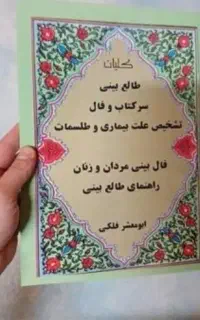 کلیات
طالع بینی
سرکتاب و فال
تشخیص علت بیماری و طلسمات
فال بینی مردان و زنان
راهنمای طالع بینی
ابومعشر فلکی